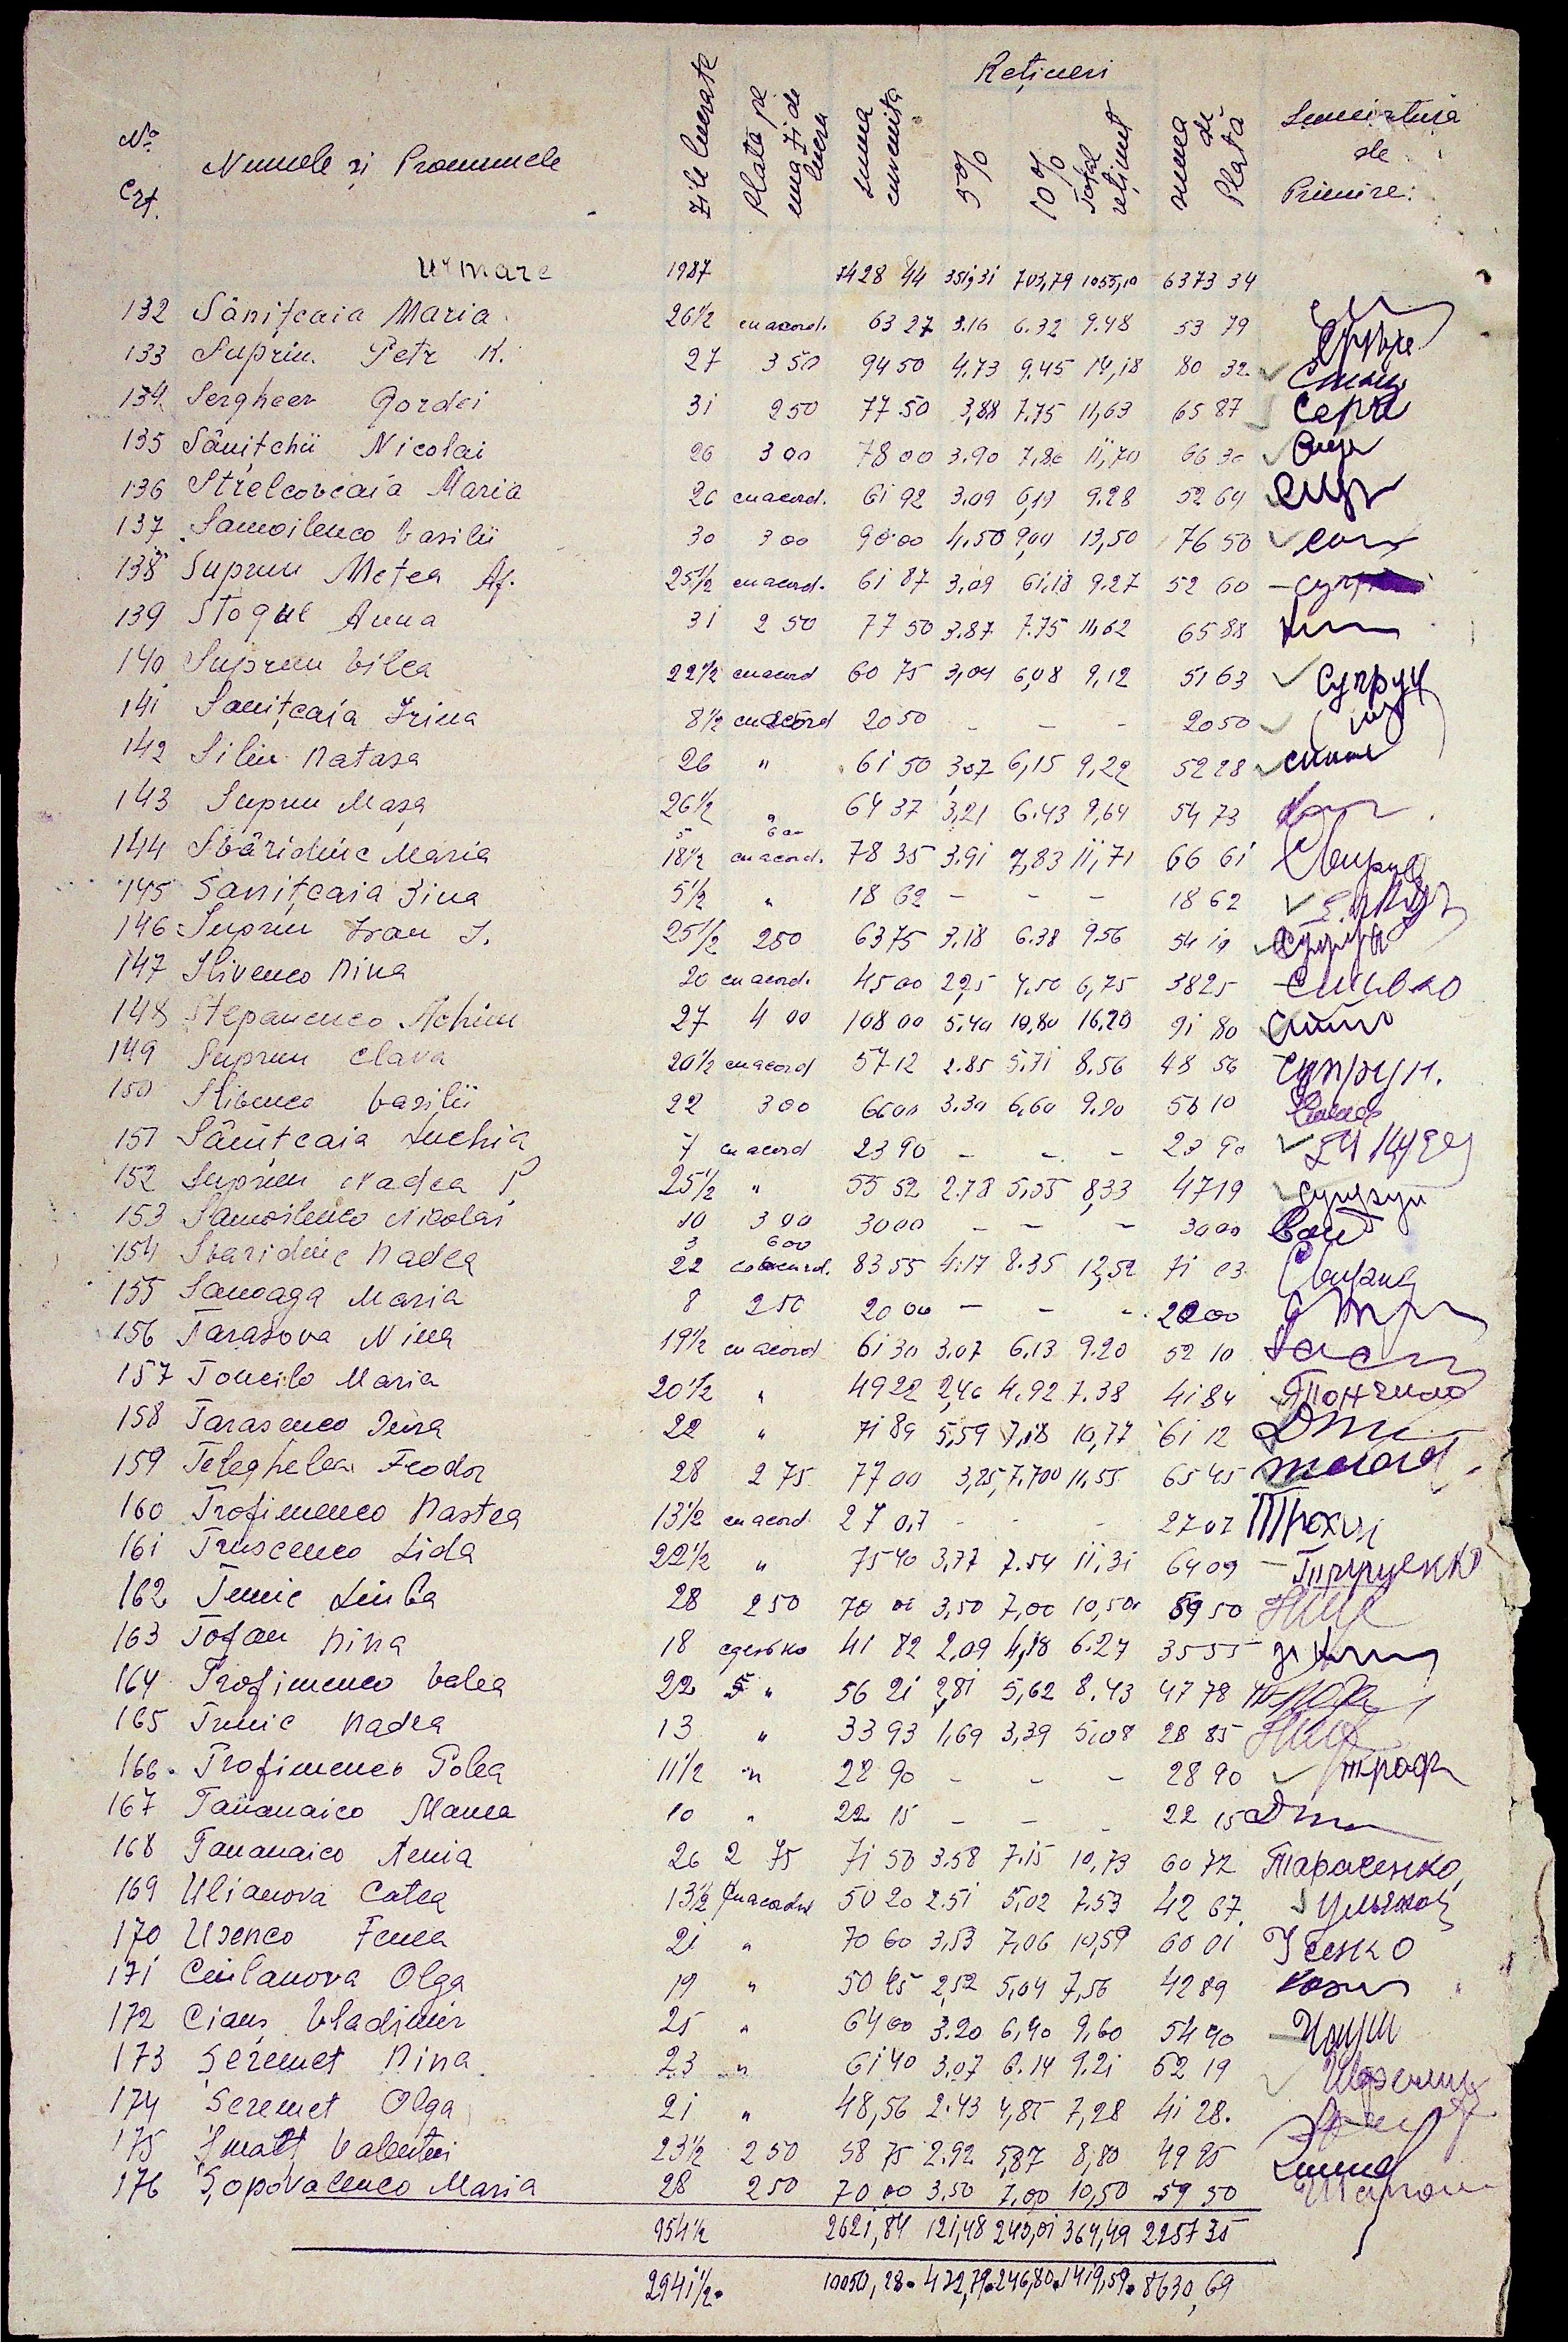 Rețineri
No Crt. Numele și Pronumele Zile lucrate Plata pe una zi de lucru suma cuvenită 5% 10% Total reținut suma de Plata Semnătura de Primire:
Urmare 1987 7428 44 351,31 703,79 1055,10 6373 34
132 Sânițcaia Maria 26½ cu acord. 63 27 3.16 6.32 9.48 53 79
133 Suprun Petr K. 27 3 50 94 50 4.73 9.45 14,18 80 32
134 Sergheev Gordei 31 2 50 77 50 3,88 7.75 11,63 65 87 Серг
135 Sânițchii Nicolai 26 3 00 78 00 3.90 7,80 11,70 66 30
136 Strelcovcaia Maria 26 cu acord. 61 92 3.09 6,19 9.28 52 64
137 Samoilenco Vasilii 30 3 00 90 00 4.50 9,00 13,50 76 50 Сам
138 Suprun Motea Af. 25½ cu acord. 61 87 3,09 6,18 9.27 52 60
139 Stogul Anna 31 2 50 77 50 3.87 7.75 11,62 65 88
140 Suprun Vilea 22½ cu acord 60 75 3,04 6,08 9,12 51 63 Супрун
141 Sanițcaia Irina 8½ cu acord 20 50 - - - 20 50
142 Silin Natașa 26 " 61 50 3,07 6,15 9,22 52 28
143 Suprun Mașa 26½ " 64 37 3,21 6.43 9,64 54 73
144 Sváridiuc Maria 5 18½ 6 00 cu acord. 78 35 3.91 7,83 11,71 66 61
145 Sanițcaia Zina 5½ " 18 62 - - - 18 62
146 Suprun Ivan I. 25½ 250 63 75 3.18 6.38 9.56 54 19
147 Slivenco Nina 20 cu acord. 45 00 2,25 4.50 6,75 38 25
148 Stepanenco Achim 27 4 00 108 00 5.40 10,80 16,20 91 80
149 Suprun Clava 20½ cu acord 57 12 2.85 5.71 8,56 48 56 Супрун.
150 Slivenco Vasilii 22 3 00 66 00 3.30 6,60 9.90 56 10
151 Sânițcaia Luchia 7 cu acord 23 90 - - - 23 90
152 Suprun Nadea P. 25½ " 55 52 2.78 5,55 8,33 47 19 Супрун
153 Samoilenco Nicolai 10 3 00 30 00 - - - 30 00
154 Svaridiuc Nadea 3 22 6 00 cu acord. 83 55 4.17 8.35 12,52 71 03
155 Samoaga Maria 8 2 50 20 00 - - - 20 00
156 Tarasova Nina 19½ cu acord 61 30 3.07 6.13 9.20 52 10
157 Toncilo Maria 20½ " 49 22 2,46 4.92 7.38 41 84 Тончило
158 Tarasenco Jena 22 " 71 89 5,59 7,18 10,77 61 12
159 Teleghelea Feodor 28 2 75 77 00 3,85 7.700 11.55 65 45
160 Trofimenco Nastea 13½ cu acord 27 0,7 - - - 27 07
161 Truscenco Lida 22½ " 75 40 3,77 7.54 11,31 64 09
162 Tunic Liuba 28 2 50 70 00 3,50 7,00 10,50 59 50
163 Tofan Nina 18 сдельно 41 82 2,09 4,18 6.27 35 55
164 Trofimenco Valea 22 " 56 21 2,81 5,62 8.43 47 78
165 Tunic Nadea 13 " 33 93 1,69 3,39 5,08 28 85
166. Trofimenco Polea 11½ " 22 90 - - - 28 90 Троф
167 Tananaico Manea 10 " 22 15 - - - 22 15
168 Tananaico Xenia 26 2 75 71 50 3.58 7.15 10,73 60 72 Тарасенко
169 Ulianova Catea 13½ cu acordul 50 20 2.51 5,02 7,53 42 67
170 Usenco Fenea 21 " 70 60 3,53 7,06 10,59 60 01 Усенко
171 Ceulanova Olga 19 " 50 45 2,52 5,04 7,56 42 89
172 Ciauș Vladimir 25 " 64 00 3.20 6,40 9,60 54 40 Чауш
173 Șeremet Nina 23 " 61 40 3.07 6.14 9.21 52 19
174 Seremet Olga 21 " 48,56 2.43 4,85 7,28 41 28.
175 Smatt Valentin 23½ 2 50 58 75 2.92 5,87 8,80 49 95
176 Șopovalenco Maria 28 2 50 70 00 3.50 7,00 10,50 59 50
954½ 2621,84 121,48 243,01 364,49 2257 35
2941½. 10050,28. 472,79. 246,80. 1419,59. 8630,69